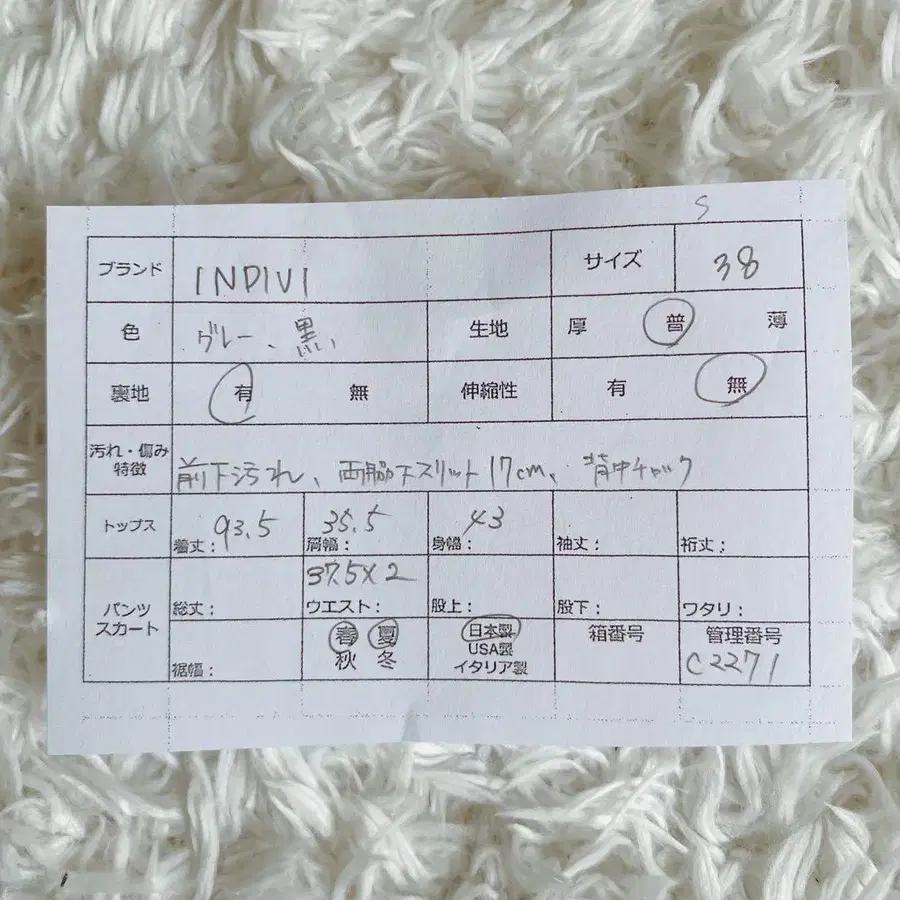 S
ブランド INDIVI サイズ 38
色 グレー、黒、 生地 厚 普 薄
裏地 有 無 伸縮性 有 無
汚れ・傷み
特徴 前下汚れ、両脇下スリット17cm、背中チャック
トップス 着丈: 93.5 肩幅: 35.5 身幅: 43 袖丈: 裄丈:
37.5×2
パンツ
スカート 総丈: ウエスト: 股上: 股下: ワタリ:
裾幅: 春 夏 日本製 箱番号 管理番号
秋 冬 USA製 C2271
イタリア製